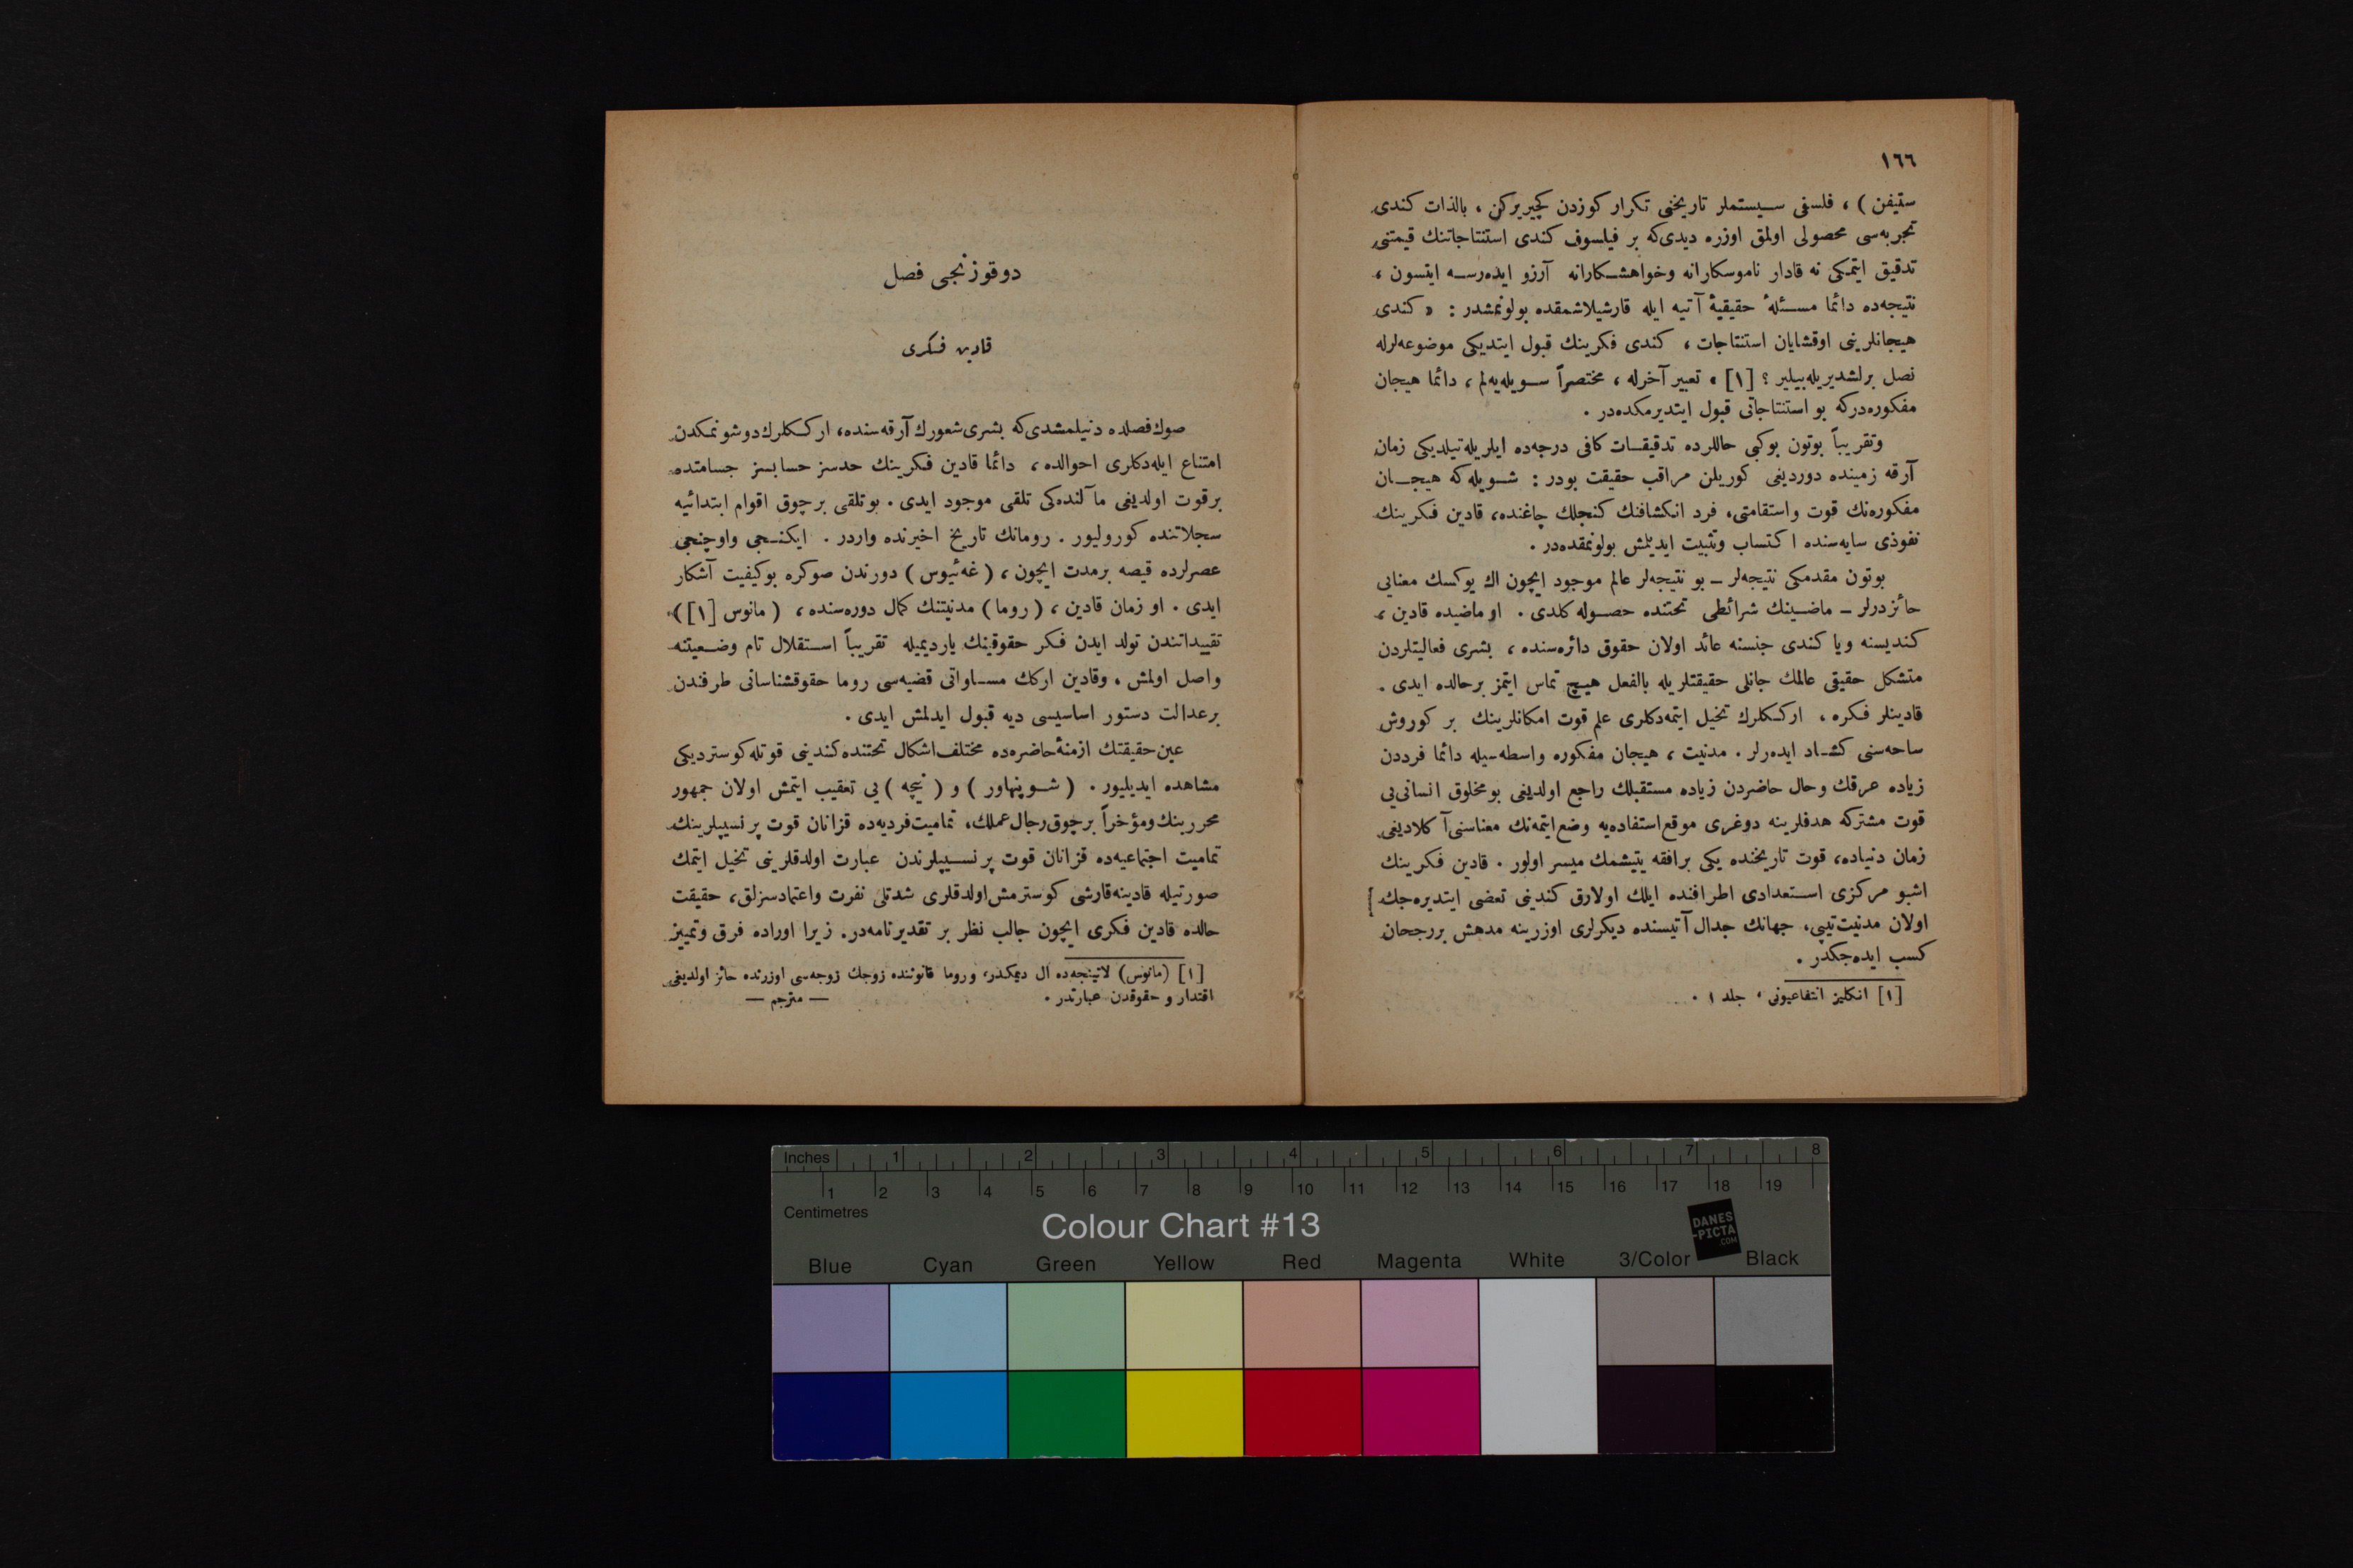 ١٦٦
ستيفن ) ، فلسفى سيستملر تاريخنى تكرار كوزدن كچيريركن ، بالذات كندى
تجربه‌سى محصولى اولمق اوزره ديدى‌كه بر فيلسوف كندى استنتاجاتنك قيمتنى
تدقيق ايتمكى نه قادار ناموسكارانه وخواهشكارانه آرزو ايده‌رسه ايتسون ،
نتيجه‌ده دائما مسئلهٔ حقيقيهٔ آتيه ايله قارشيلاشمقده بولونمشدر : « كندى
هيجانلرينى اوقشايان استنتاجات ، كندى فكرينك قبول ايتديكى موضوعه‌لرله
نصل برلشديريله‌بيلير ؟ [١] » تعبير آخرله ، مختصراً سويله‌يه‌لم ، دائما هيجان
مفكوره‌دركه بو استنتاجاتى قبول ايتديرمكده‌در .
وتقريباً بوتون بوكبى حاللرده تدقيقات كافى درجه‌ده ايلريله‌تيلديكى زمان
آرقه زمينده دورديغى كوريلن مراقب حقيقت بودر : شويله‌كه هيجان
مفكوره‌نك قوت واستقامتى، فرد انكشافنك كنجلك چاغنده، قادين فكرينك
نفوذى سايه‌سنده اكتساب وتثبيت ايديلمش بولونمقده‌در .
بوتون مقدمكى نتيجه‌لر ــ بو نتيجه‌لر عالم موجود ايچون اك يوكسك معنايى
حائزدرلر ــ ماضينك شرائطى تحتنده حصوله كلدى . او ماضيده قادين ،
كنديسنه ويا كندى جنسنه عائد اولان حقوق دائره‌سنده ، بشرى فعاليتلردن
متشكل حقيقى عالمك جانلى حقيقتلريله بالفعل هيچ تماس ايتمز برحالده ايدى .
قادينلر فكره ، ارككلرك تخيل ايتمه‌دكلرى علم قوت امكانلرينك بر كوروش
ساحه‌سنى كشاد ايده‌رلر . مدنيت ، هيجان مفكوره واسطه‌سيله دائما فرددن
زياده عرقك وحال حاضردن زياده مستقبلك راجع اولديغى بومخلوق انسانى‌يى
قوت مشتركه هدفلرينه دوغرى موقع‌استفاده‌يه وضع‌ايتمه‌نك معناسنى آكلاديغى
زمان دنياده، قوت تاريخنده يكى برافقه ييتيشمك ميسر اولور . قادين فكرينك
اشبو مركزى استعدادى اطرافنده ايلك اولارق كندينى تعضى ايتديره‌جك
اولان مدنيت‌تيپى، جهانك جدال آتيسنده ديكرلرى اوزرينه مدهش بررجحان
كسب ايده‌جكدر .
[١] انكليز انتفاعيونى ، جلد ١ .
دوقوزنجى فصل
قادين فكرى
صوك‌فصلده دنيلمشدى‌كه بشرى‌شعورك آرقه‌سنده، اركـكلرك‌دوشونمكدن
امتناع ايله‌دكلرى احوالده ، دائما قادين فكرينك حدسز حسابسز جسامتده
برقوت اولديغى مآلنده‌كى تلقى موجود ايدى . بوتلقى برچوق اقوام ابتدائيه
سجلاتنده كوروليور . رومانك تاريخ اخيرنده واردر . ايكنجى واوچنجى
عصرلرده قيصه برمدت ايچون ، ( غه‌ئيوس ) دورندن صوكره بوكيفيت آشكار
ايدى . او زمان قادين ، ( روما ) مدنيتنك كمال دوره‌سنده ، ( مانوس [١] )
تقييداتندن تولد ايدن فكر حقوقينك يارديميله تقريباً استقلال تام وضعيتنه
واصل اولمش ، وقادين اركك مساواتى قضيه‌سى روما حقوقشناسانى طرفندن
برعدالت دستور اساسيسى ديه قبول ايدلمش ايدى .
عين‌حقيقتك ازمنهٔ‌حاضره‌ده مختلف‌اشكال تحتنده‌كندينى قوتله‌كوسترديكى
مشاهده ايديليور . ( شوپنهاور ) و ( نيچه ) يى تعقيب ايتمش اولان جمهور
محررينك‌ومؤخراً برچوق‌رجال‌عملك، تماميت‌فرديه‌ده قزانان قوت پرنسيپلرينك
تماميت اجتماعيه‌ده قزانان قوت پرنسيپلرندن عبارت اولدقلرينى تخيل ايتمك
صورتيله قادينه‌قارشى كوسترمش‌اولدقلرى شدتلى نفرت واعتمادسزلق، حقيقت
حالده قادين فكرى ايچون جالب نظر بر تقديرنامه‌در. زيرا اوراده فرق وتمييز
[١] (مانوس) لاتينجه‌ده ال ديمكدر، وروما قانوننده زوجك زوجه‌سى اوزرنده حائز اولديغى
اقتدار و حقوقدن عبارتدر . — مترجم —
Inches 1 2 3 4 5 6 7 8
1 2 3 4 5 6 7 8 9 10 11 12 13 14 15 16 17 18 19
Centimetres
Colour Chart #13
DANES
-PICTA
.COM
Blue Cyan Green Yellow Red Magenta White 3/Color Black